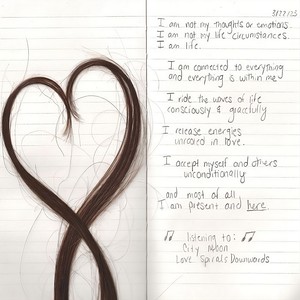 3/27/13
I am not my thoughts or emotions.
I am not my life circumstances.
I am life.
I am connected to everything
and everything is within me
I ride the waves of life
consciously & gracefully
I release energies
unrooted in love.
I accept myself and others
unconditionally
and most of all
I am present and here.
listening to:
City Moon
Love Spirals Downwards